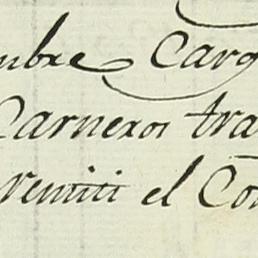 mbre Carg
Carneros tra
remiti el Con